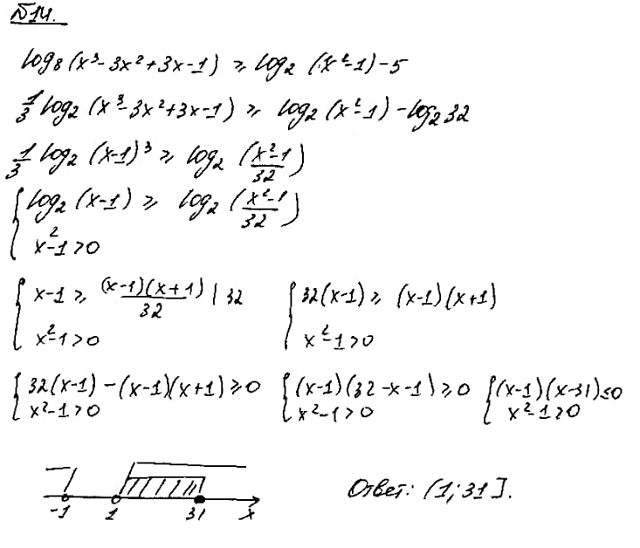 №14.
log₈(x³-3x²+3x-1) ≥ log₂(x²-1)-5
1/3 log₂(x³-3x²+3x-1) ≥ log₂(x²-1)-log₂32
1/3 log₂(x-1)³ ≥ log₂((x²-1)/32)
{ log₂(x-1) ≥ log₂((x²-1)/32)
x²-1>0
{ x-1 ≥ (x-1)(x+1)/32 | 32
x²-1>0
{ 32(x-1) ≥ (x-1)(x+1)
x²-1>0
{ 32(x-1)-(x-1)(x+1) ≥ 0
x²-1>0
{ (x-1)(32-x-1) ≥ 0
x²-1>0
{ (x-1)(x-31) ≤ 0
x²-1>0
-1 1 31 x
Ответ: (1;31].